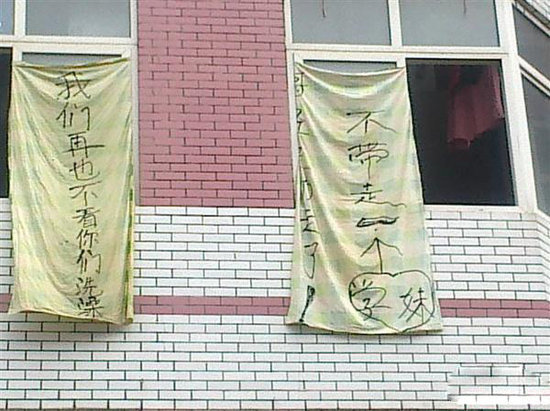 我们再也不看你们洗澡
了
不带走一个学妹